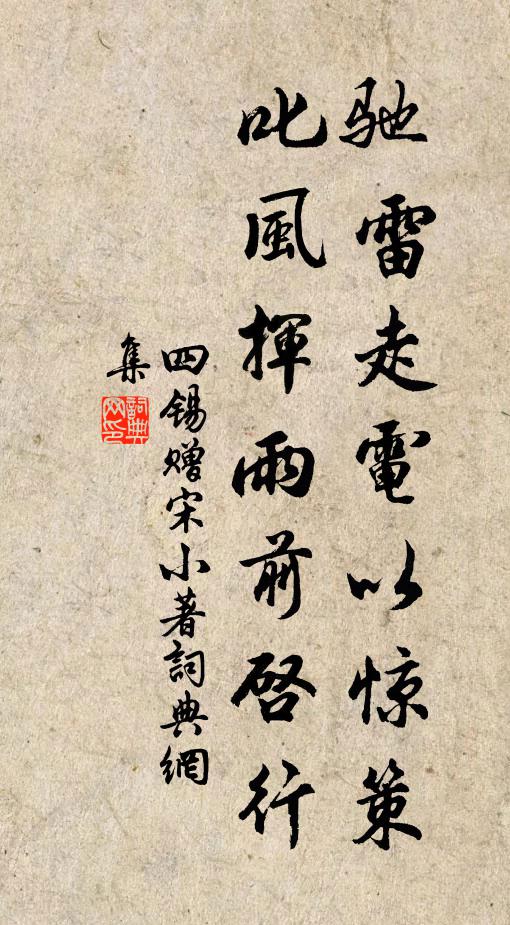 驰雷走電以惊策
叱風揮雨前啓行
四锡赠宋小著詞典網
集
詞典网印